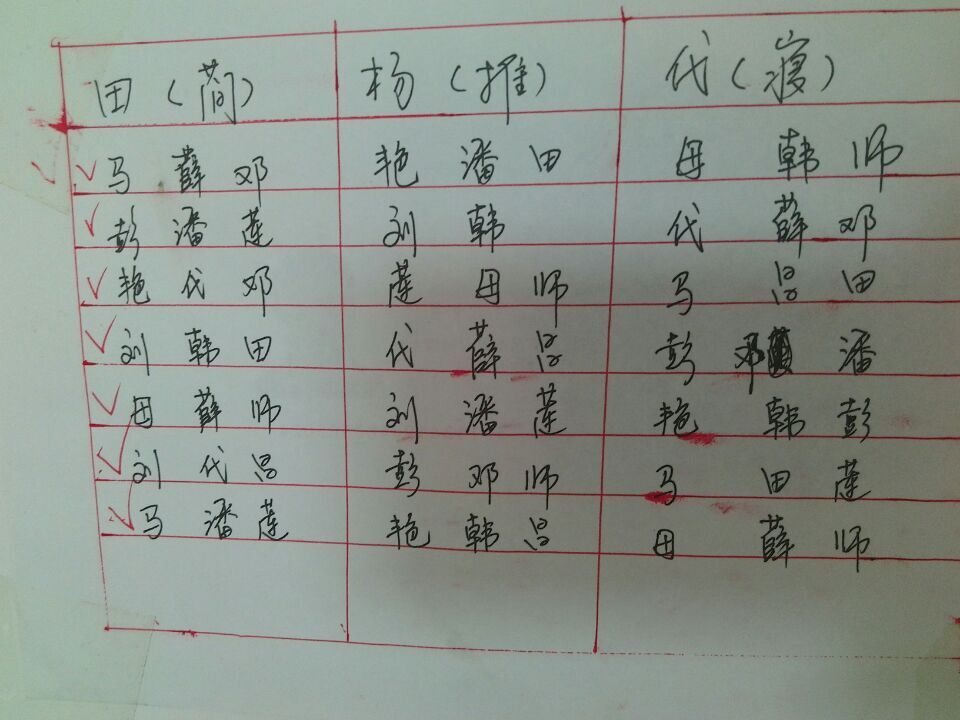 田（简） 杨（推） 代（寝）
马 薛 邓 艳 潘 田 母 韩 师
彭 潘 莲 刘 韩 代 薛 邓
艳 代 邓 莲 母 师 马 吕 田
刘 韩 田 代 薛 吕 彭 邓 潘
母 薛 师 刘 潘 莲 艳 韩 彭
刘 代 吕 彭 邓 师 马 田 莲
马 潘 莲 艳 韩 吕 母 薛 师